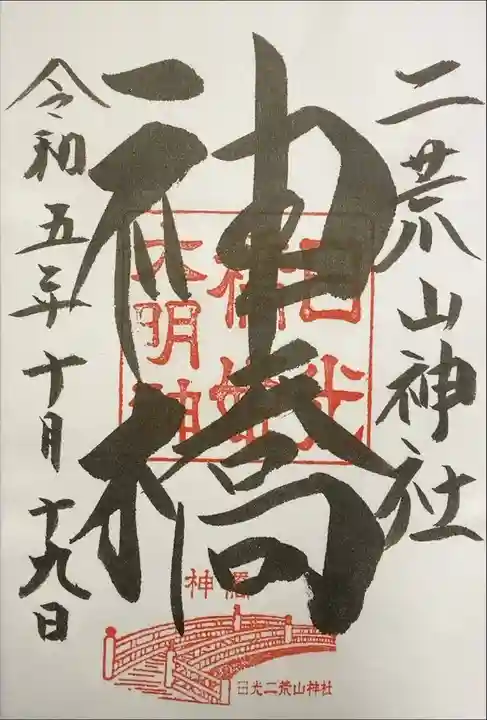 二荒山神社
神橋
令和五年十月十九日
日光
橋姫
大明神
神橋
日光二荒山神社